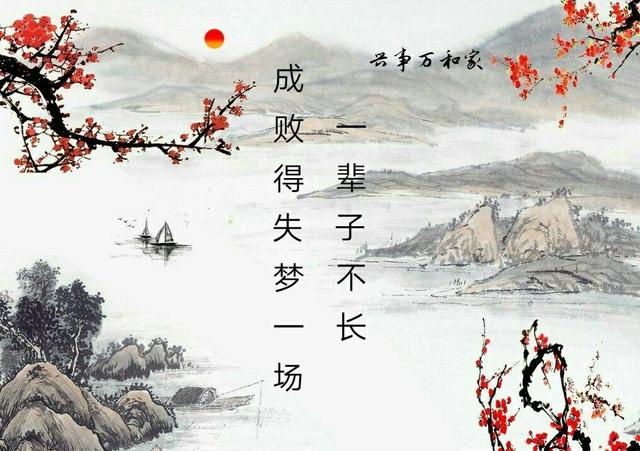 家和万事兴
一辈子不长
成败得失梦一场